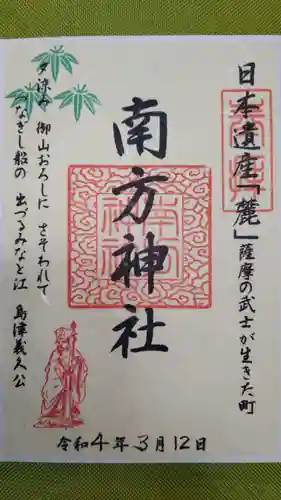 日本遺産「麓」薩摩の武士が生きた町
南方神社
夕涼み 御山おろしに さそわれて
つなぎし船の 出づるみなと江 島津義久公
令和4年3月12日